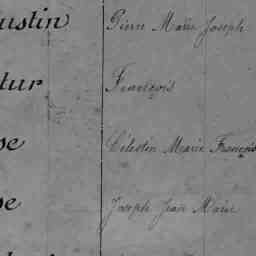 ustin Pierre Marie Joseph
tur François
se Célestin Marie François
se Joseph Jean Marie